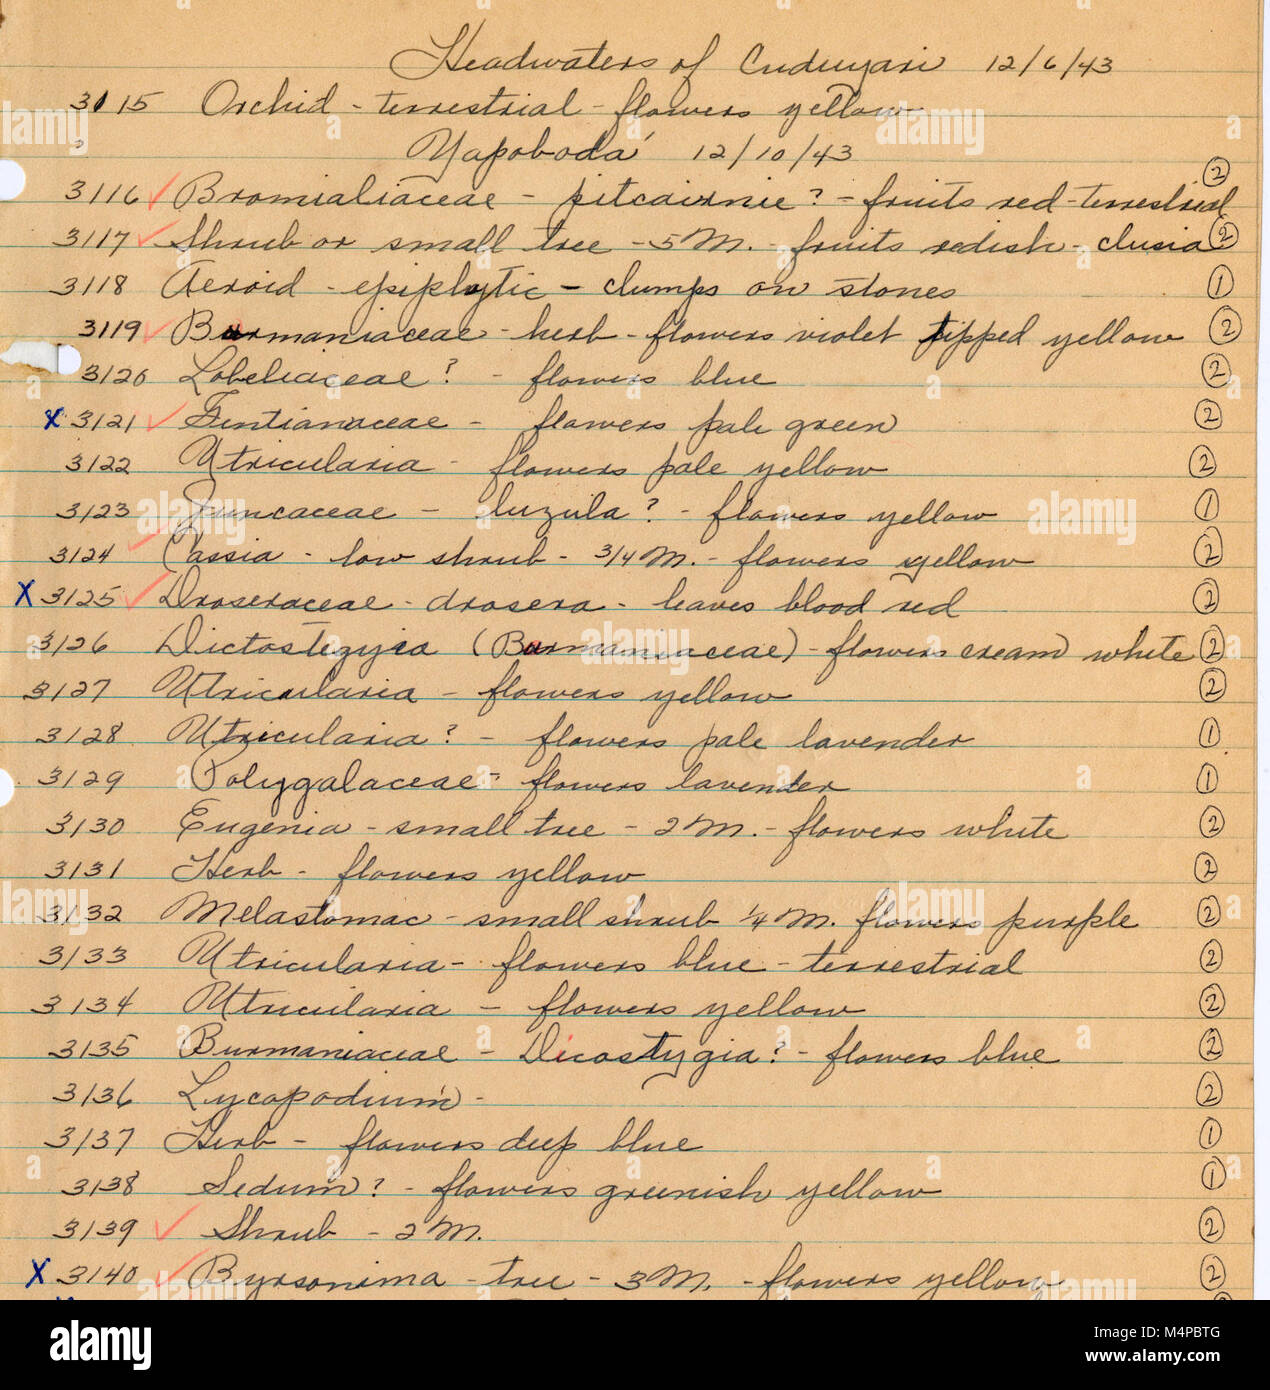 Headwaters of Cuduyari 12/6/43
3115 Orchid - terrestrial - flowers yellow
Yapobodá 12/10/43
3116 ✓ Bromialiaceae - pitcairnie? - fruits red - terrestrial ②
3117 ✓ Shrub or small tree - 5 M. - fruits redish - clusia ②
3118 Aeroid - epiphytic - clumps on stones ①
3119 ✓ Burmaniaceae - herb - flowers violet tipped yellow ②
3120 Lobeliaceae? - flowers blue ②
x 3121 ✓ Gentianaceae - flowers pale green ②
3122 Utricularia - flowers pale yellow ②
3123 Juncaceae - luzula? - flowers yellow ①
3124 ✓ Cassia - low shrub - 3/4 M. - flowers yellow ②
X 3125 ✓ Droseraceae - drosera - leaves blood red ②
3126 Dictostegyia (Burmaniaceae) - flowers cream white ②
3127 Utricularia - flowers yellow ②
3128 Utricularia? - flowers pale lavender ①
3129 Polygalaceae - flowers lavender ①
3130 Eugenia - small tree - 2 M. - flowers white ②
3131 Herb - flowers yellow ②
3132 Melastomac - small shrub 1/4 M. flowers purple ②
3133 Utricularia - flowers blue - terrestrial ②
3134 Utricularia - flowers yellow ②
3135 Burmaniaceae - Dicostygia? - flowers blue ②
3136 Lycopodium - ②
3137 Herb - flowers deep blue ①
3138 Sedum? - flowers greenish yellow ①
3139 ✓ Shrub - 2 M. ②
X 3140 ✓ Byrsonima - tree - 3 M. - flowers yellow ②
alamy
Image ID: M4PBTG
www.alamy.com